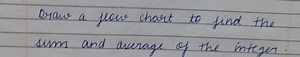 Draw a flow chart to find the
sum and average of the integer.